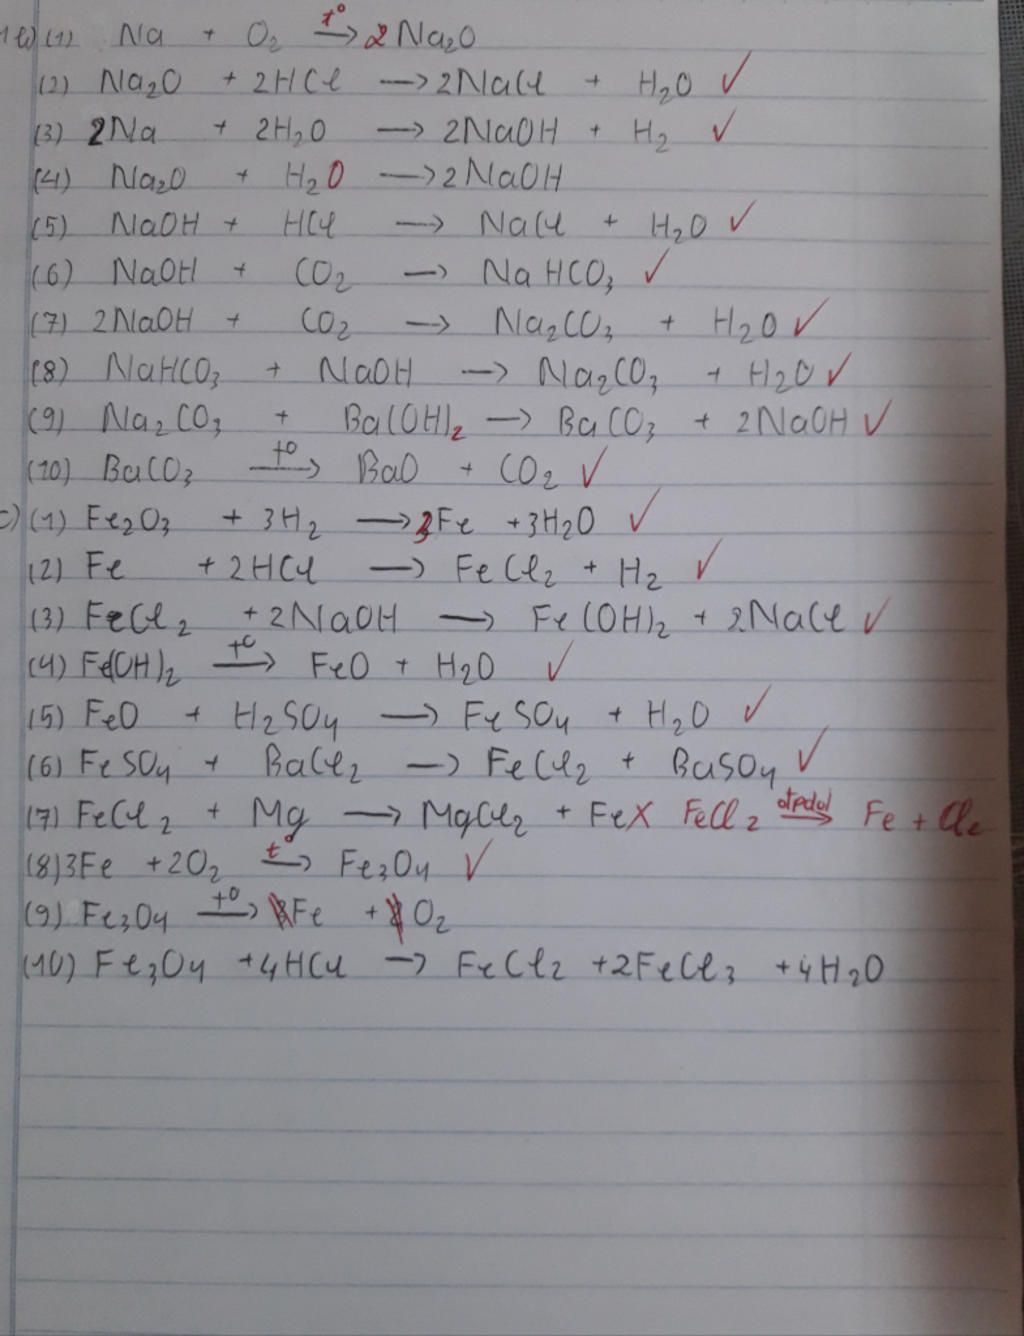 1b) (1) Na + O₂ t° → 2 Na₂O
(2) Na₂O + 2HCl → 2NaCl + H₂O ✓
(3) 2Na + 2H₂O → 2NaOH + H₂ ✓
(4) Na₂O + H₂O → 2NaOH
(5) NaOH + HCl → NaCl + H₂O ✓
(6) NaOH + CO₂ → NaHCO₃ ✓
(7) 2NaOH + CO₂ → Na₂CO₃ + H₂O ✓
(8) NaHCO₃ + NaOH → Na₂CO₃ + H₂O ✓
(9) Na₂CO₃ + Ba(OH)₂ → BaCO₃ + 2NaOH ✓
(10) BaCO₃ t° → BaO + CO₂ ✓
c) (1) Fe₂O₃ + 3H₂ → 2Fe + 3H₂O ✓
(2) Fe + 2HCl → FeCl₂ + H₂ ✓
(3) FeCl₂ + 2NaOH → Fe(OH)₂ + 2NaCl ✓
(4) Fe(OH)₂ t° → FeO + H₂O ✓
(5) FeO + H₂SO₄ → FeSO₄ + H₂O ✓
(6) FeSO₄ + BaCl₂ → FeCl₂ + BaSO₄ ✓
(7) FeCl₂ + Mg → MgCl₂ + Fe X FeCl₂ đpdd → Fe + Cl₂
(8) 3Fe + 2O₂ t° → Fe₃O₄ ✓
(9) Fe₃O₄ t° → Fe + O₂
(10) Fe₃O₄ + 4HCl → FeCl₂ + 2FeCl₃ + 4H₂O